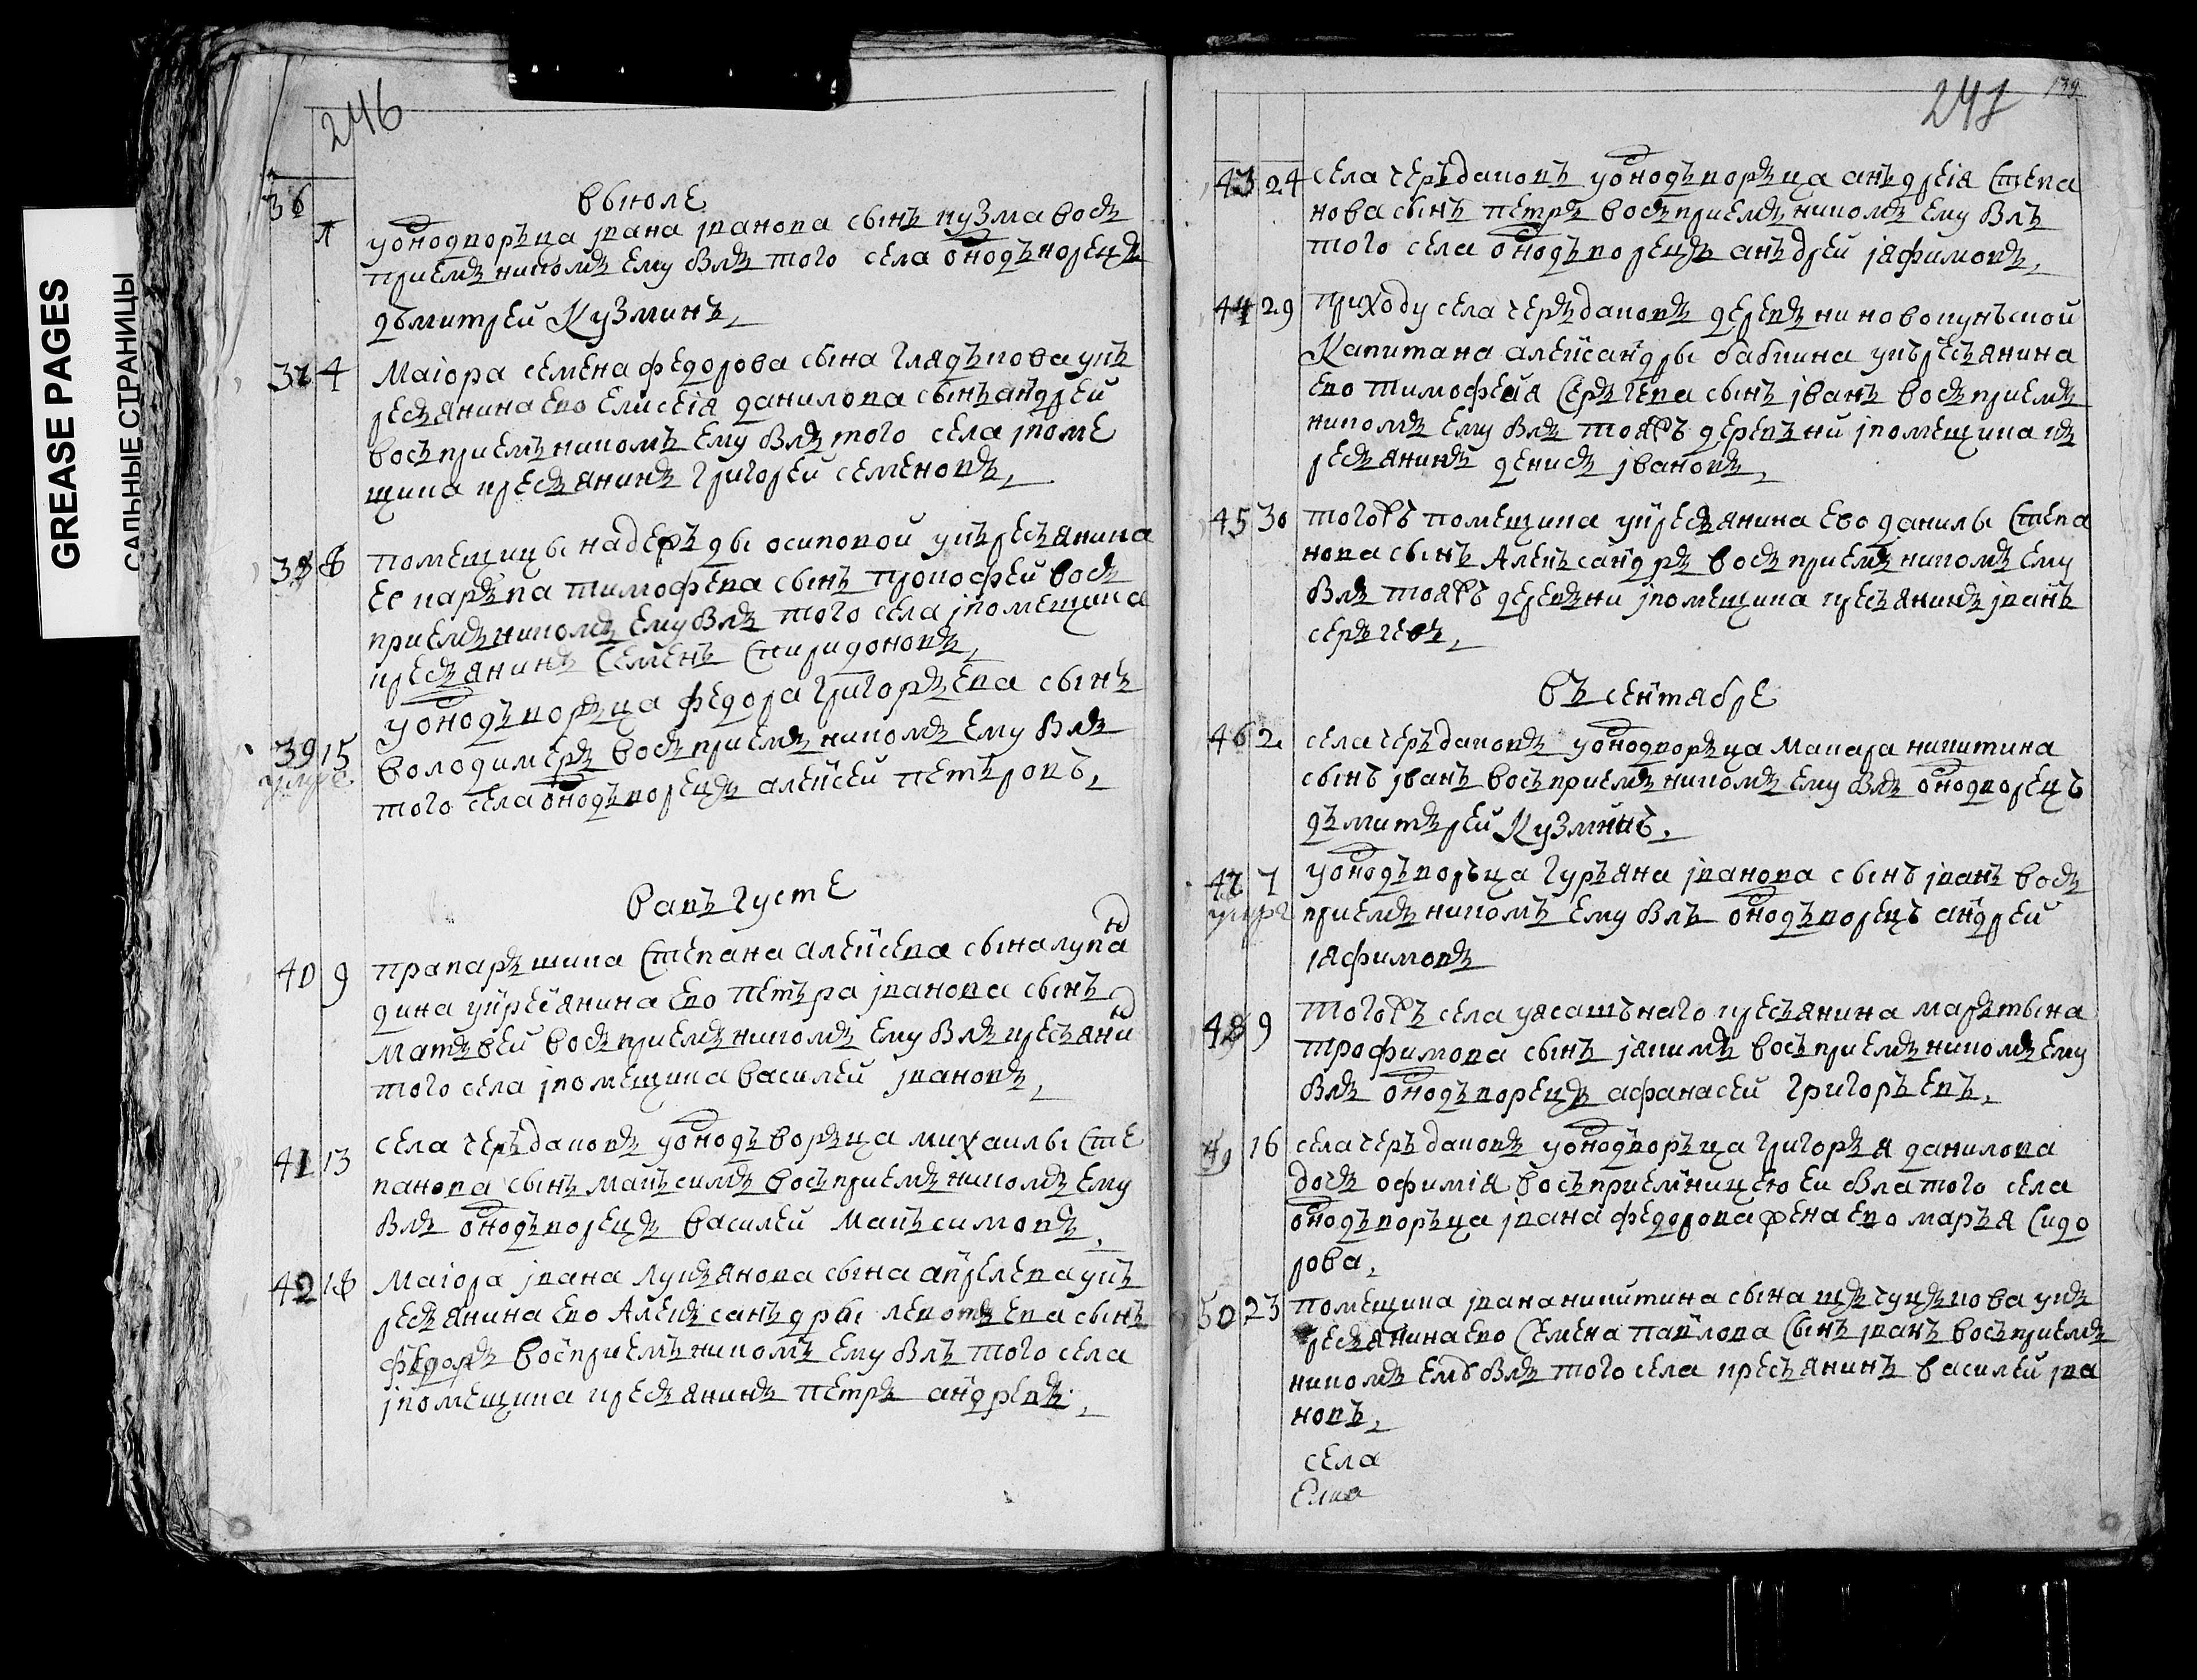 GREASE PAGES
САЛЬНЫЕ СТРАНИЦЫ
246
в июле
36
у однодворъца ивана иванова сынъ кузма вос
приемъникомъ ему былъ того села однодъворецъ
дъмитрей Кузминъ,
37 4 Маiора семена федорова сына глядъкова укъ
ресъянина ево елисеiя данилова сынъ андрей
восъприемъникомъ ему былъ того села iпоме
щика кресъянинъ григорей семеновъ,
38 8 помещицы надеръды осиповой укъресъянина
ее каръпа тимофева сынъ прокофей восъ
приемъникомъ ему былъ того села iпомещика
кресъянинъ семенъ спиридоновъ,
39 15 у однодъворъца федора григоръева сынъ
володимеръ восъприемъникомъ ему былъ
того села однодъворецъ алексей петъровъ,
в авъгусте
40 9 прапаръщика степана алексева сына лупа
дина укресянина ево петъра iванова сынъ
матъвей восъприемъникомъ ему былъ кресъяни
того села iпомещика василей iвановъ,
41 13 села черъдаковъ у однодъворъца михаилы сте
панова сынъ макъсимъ восъприемъникомъ ему
былъ однодъворецъ василей макъсимовъ,
42 18 Маiора iвана лукъянова сына апрелева укъ
ресъянина ево Алекъсанъдры левотъева сынъ
федоръ восприемъникомъ ему былъ того села
iпомещика кресъянинъ петръ андревъ,
247
139
43 24 села черъдаковъ у однодъворъца анъдреiя степа
нова сынъ петръ восъприемъникомъ ему былъ
того села однодъворецъ анъдрей iяфимовъ,
44 29 приходу села черъдаковъ деревъни новокунъской
Капитана алексайдры бабкина укъресъянина
ево тимофеiя серъгева сынъ iванъ восъприемъ
никомъ ему былъ тояжъ деревъни iпомещика къ
ресъянинъ денисъ iвановъ,
45 30 тогожъ помещика укресъянина ево данилы степа
нова сынъ Алекъсайдръ восъприемъникомъ ему
былъ тояжъ деревъни iпомещика кресъянинъ iванъ
серъгевъ,
въ сентябре
46 2 села черъдаковъ у однодворъца макара никитина
сынъ iванъ восъприемъникомъ ему былъ однодворецъ
дъмитърей Кузминъ.
47 7 у однодъворъца гуръяна iванова сынъ iванъ восъ
приемъникомъ ему былъ однодъворецъ андрей
iяфимовъ
48 9 тогожъ села уясашънаго кресъянина марътына
трофимова сынъ iякимъ восъприемъникомъ ему
былъ однодъворецъ афанасей григоръевъ,
49 16 села черъдаковъ у однодворъца григоръя данилова
дочъ офимiя восъприемницею еи была того села
однодъворъца iвана федорова жена ево маръя сидо
рова,
50 23 помещика iвана никитина сына укъ
ресъянина ево семена павлова сынъ iванъ восъприемъ
никомъ ему былъ того села кресъянинъ василей iва
новъ,
села